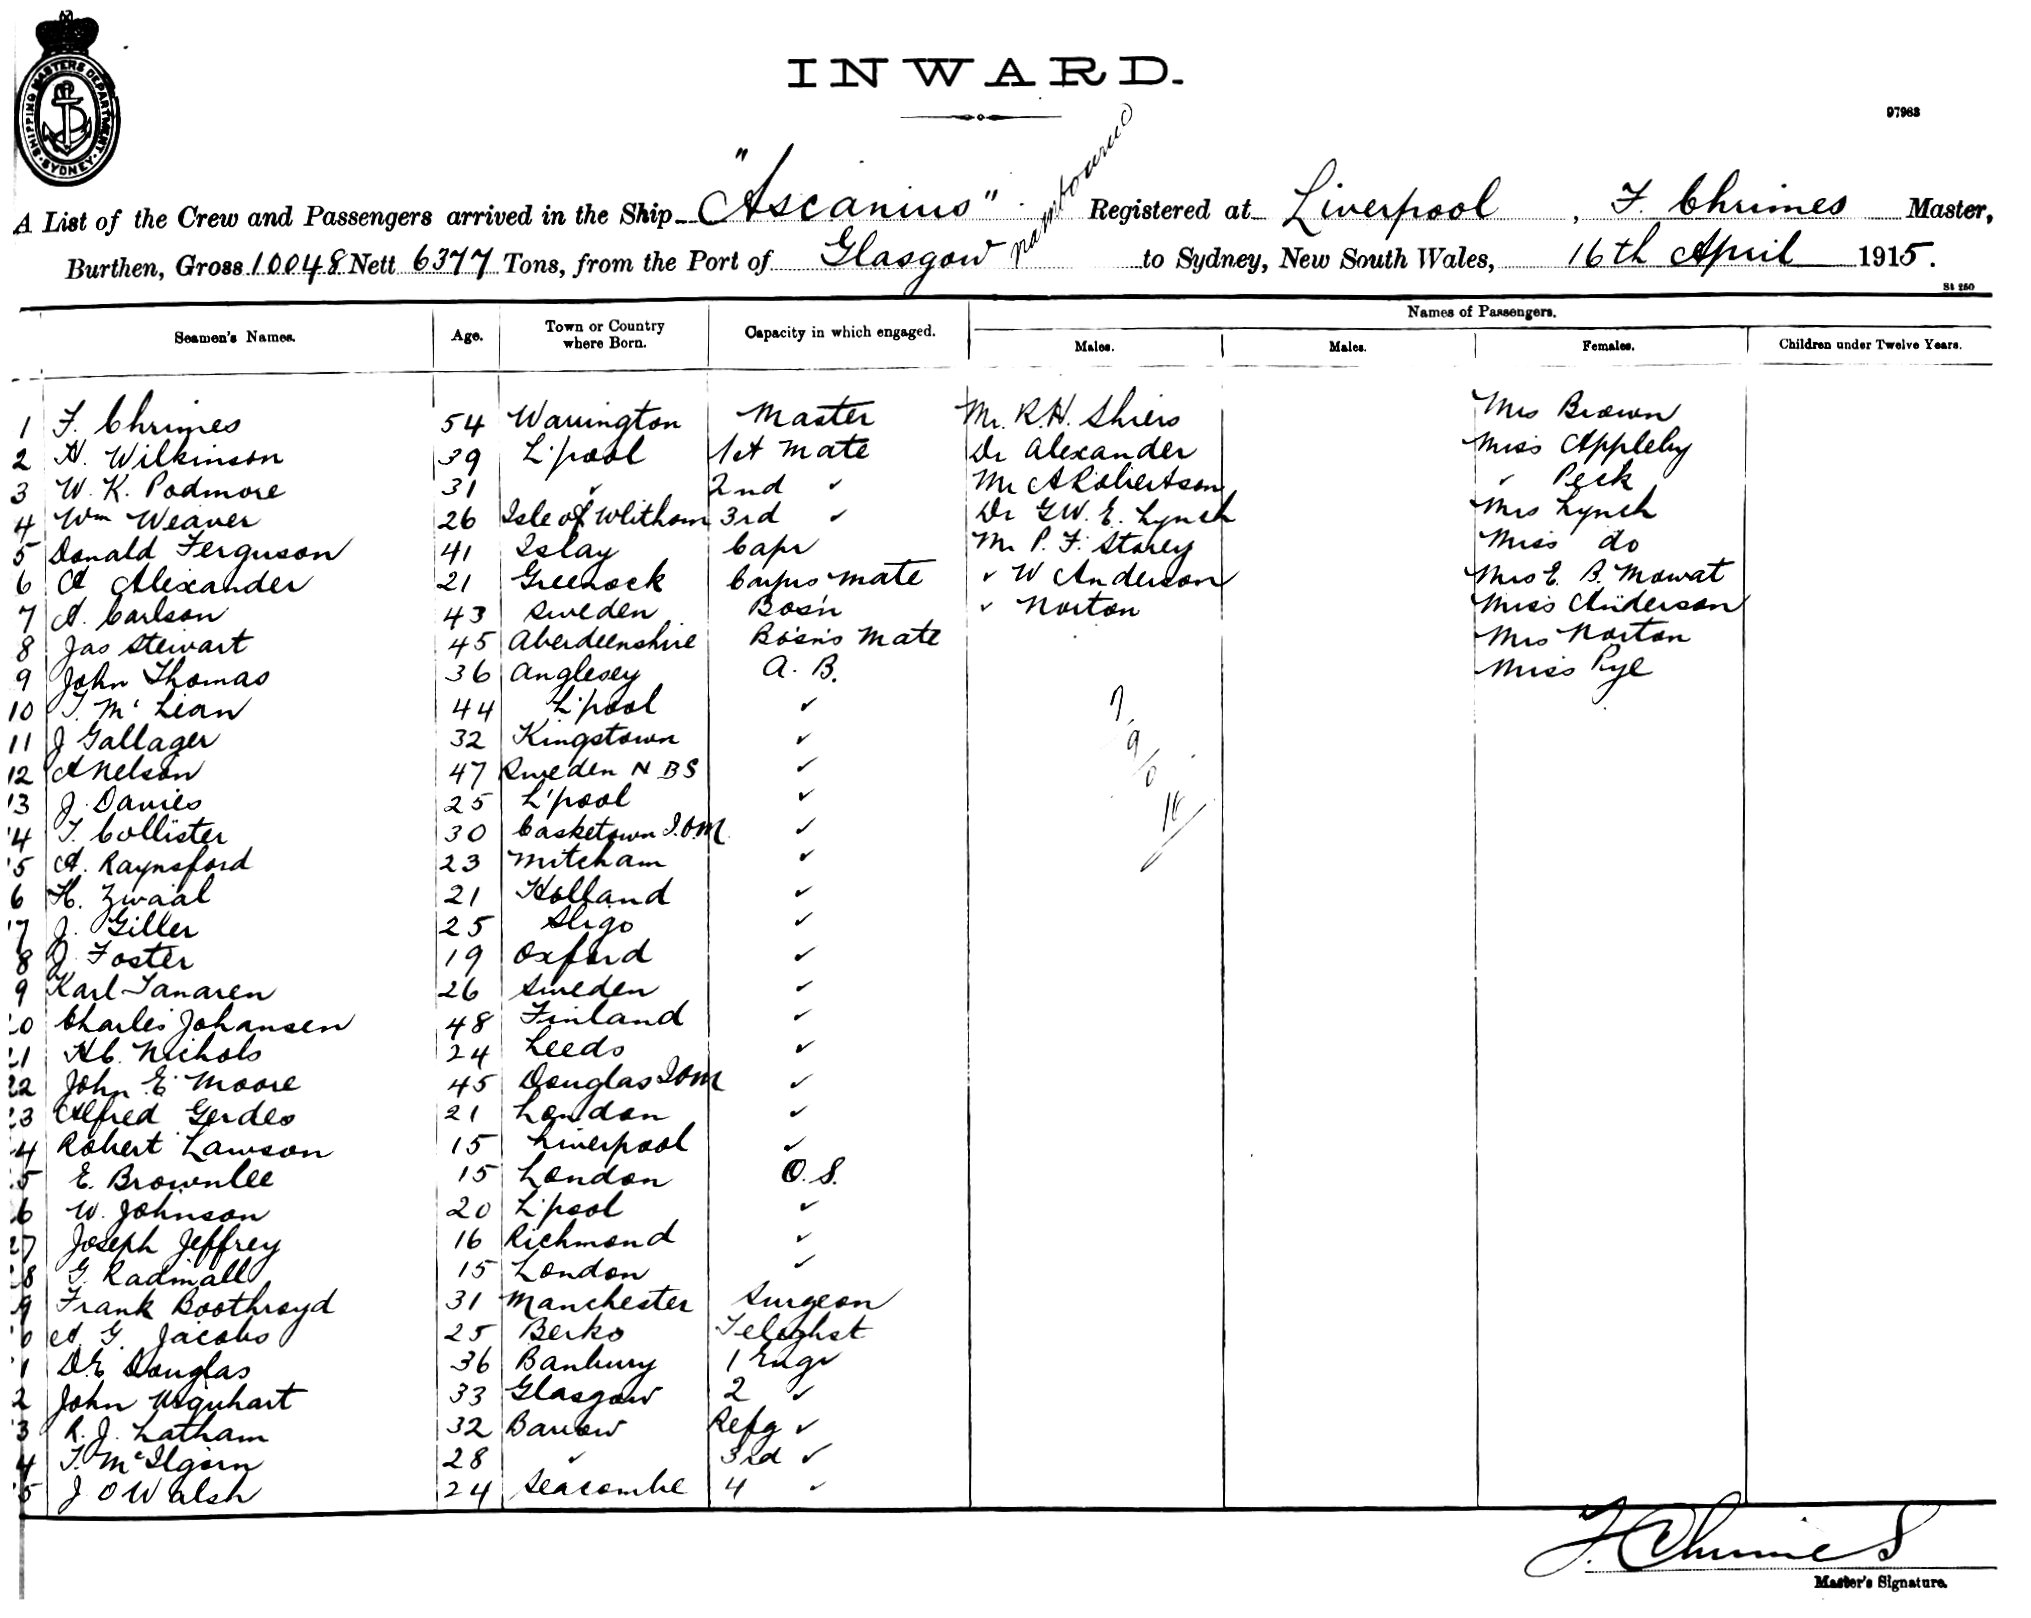 SHIPPING MASTERS DEPARTMENT
SYDNEY
INWARD.
97963
A List of the Crew and Passengers arrived in the Ship "Ascanius" Registered at Liverpool, F. Chrimes Master,
Burthen, Gross 10048 Nett 6377 Tons, from the Port of Glasgow to Sydney, New South Wales, 16th April 1915.
St 250
Seamen's Names. Age. Town or Country where Born. Capacity in which engaged. Names of Passengers.
Males. Males. Females. Children under Twelve Years.
1 F. Chrimes 54 Warrington Master Mr. R.H. Shiers Mrs Brown
2 H. Wilkinson 39 L'pool 1st Mate Dr Alexander Miss Appleby
3 W. K. Podmore 31 " 2nd " Mr A Robertson " Peck
4 Wm Weaver 26 Isle of Whithorn 3rd " Dr G.W. E. Lynch Mrs Lynch
5 Donald Ferguson 41 Islay Carpr Mr P. F. Storey Miss do
6 A Alexander 21 Greenock Carprs Mate " W Anderson Mrs E. B. Mowat
7 A. Carlson 43 Sweden Bos'n " Norton Miss Anderson
8 Jas Stewart 45 Aberdeenshire Bo'sn's Mate Mrs Norton
9 John Thomas 36 Anglesey A. B. Miss Pye
10 T. Mc Lean 44 L'pool "
11 J Gallager 32 Kingstown "
12 A Nelson 47 Sweden N B S "
13 J. Davies 25 L'pool "
14 T. Collister 30 Casketown I.O.M. "
15 A. Raynsford 23 Mitcham "
6 H. Zwaal 21 Holland "
17 J. Giller 25 Sligo "
8 J. Foster 19 Oxford "
9 Karl Tanaren 26 Sweden "
20 Charles Johansen 48 Finland "
21 H.C. Nichols 24 Leeds "
22 John E. Moore 45 Douglas I O M "
23 Alfred Gerdes 21 London "
4 Robert Lawson 15 Liverpool "
5 E. Brownlee 15 London O. S.
6 W. Johnson 20 L'pool "
27 Joseph Jeffrey 16 Richmond "
28 G. Radmall 15 London "
9 Frank Boothroyd 31 Manchester Surgeon
0 A. G. Jacobs 25 Berks Teleghst
1 D.E Douglas 36 Banbury 1 Engr
2 John Urquhart 33 Glasgow 2 "
3 R. J. Latham 32 Barrow Refg "
4 T. Mc Ilgorn 28 " 3rd "
5 J O Walsh 24 Seacombe 4 "
7
9
0
16
F. Chrimes
Master's Signature.